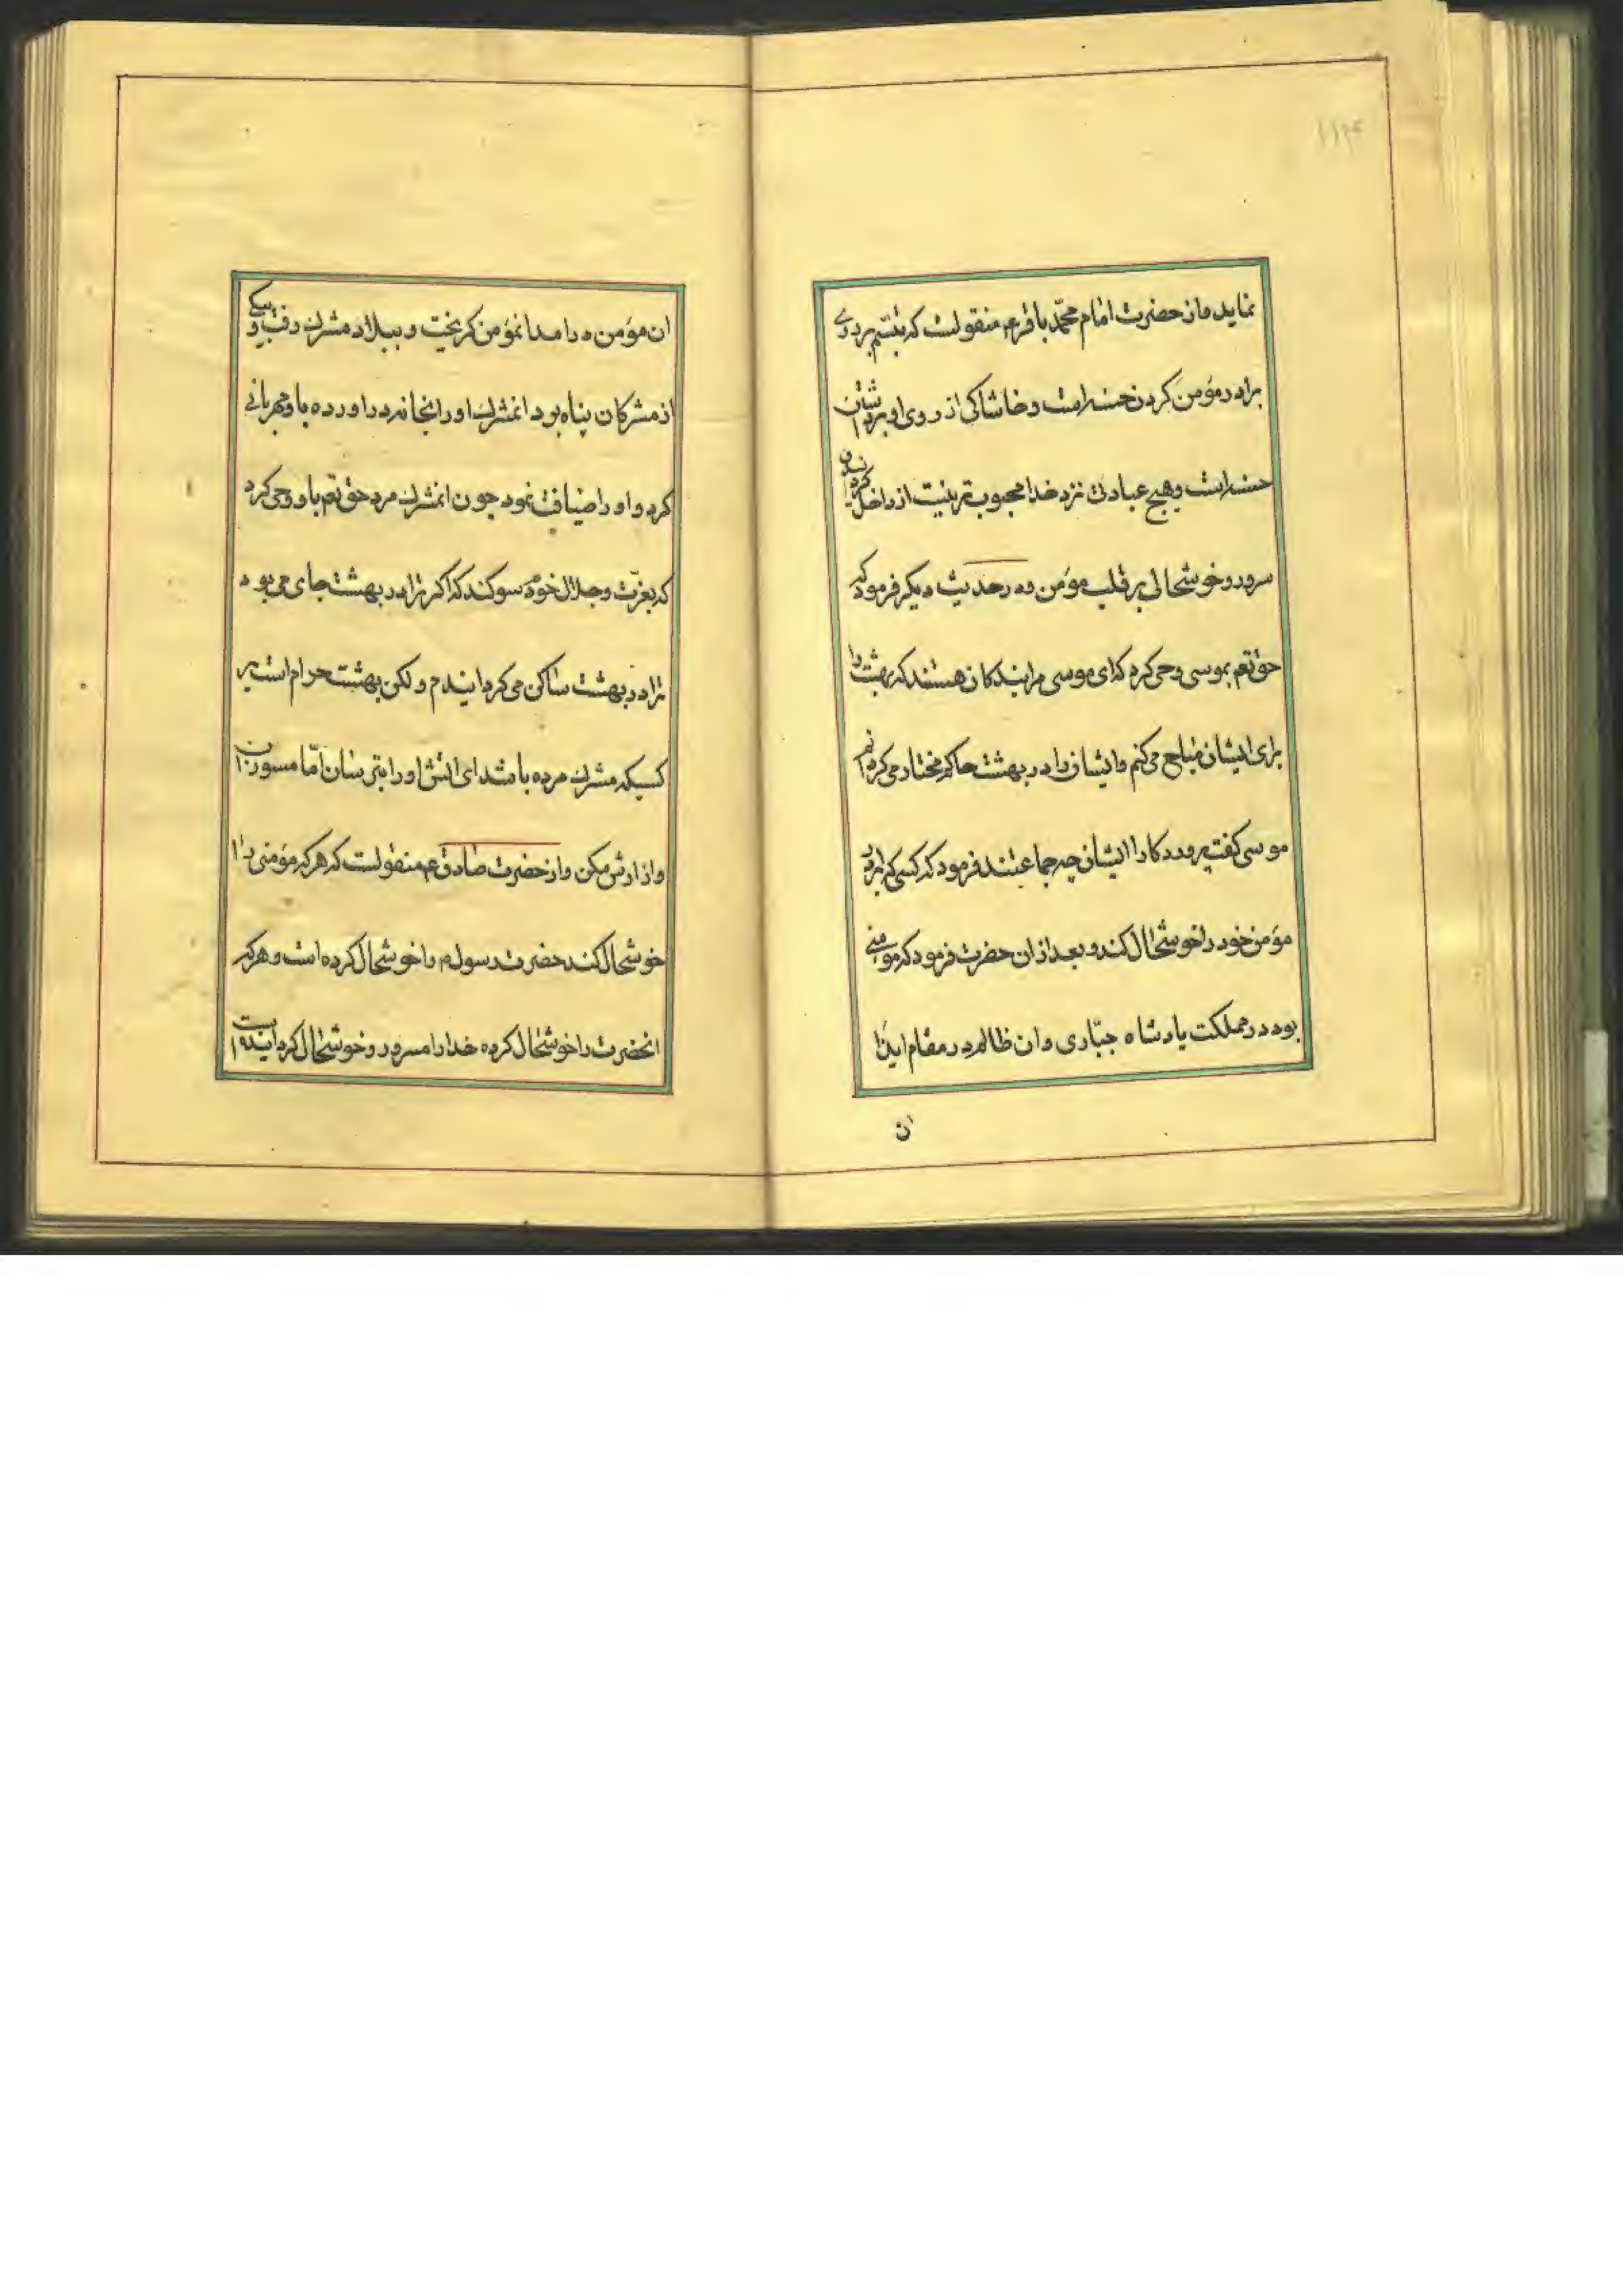 ۱۱۴
نماید و از حضرت امام محمّد باقر ع م منقولست که تبسّم بر روی
برادر مؤمن کردن حسنه است و خاشاکی از روی او برداشتن
حسنه است و هیچ عبادت نزد خدا محبوب تر نیست از داخل کردن
سرور و خوشحالی بر قلب مؤمن و در حدیث دیکر فرمود که
حق تعم بموسی وحی کرد که ای موسی مرا بندکان هستند که بهشت را
برای ایشان مباح می کنم و ایشان را در بهشت حاکم و مختار می کردانم
موسی کفت پروردکارا ایشان چه جماعتند فرمود که کسی که برادر
مؤمن خود را خوشحال کند و بعد از ان حضرت فرمود که مومنی
بود در مملکت پادشاه جبّاری و ان ظالم در مقام ایذا
ان
ان مؤمن در امد انمؤمن کریخت و ببلاد مشرک رفت و بیکی
از مشرکان پناه بود انمشرک او را بخانه در اورده باو مهربانی
کرد و او را ضیافت نمود چون انمشرک مرد حق تعم باو وحی کرد
که بعزّت و جلال خودم سوکند که اکر ترا در بهشت جای می بود
ترا در بهشت ساکن می کردانیدم و لکن بهشت حرام است بر
کسیکه مشرک مرده باشد ای اتش او را بترسان امّا مسوزان
و ازارش مکن و از حضرت صادق ع م منقولست که هر که مؤمنی را
خوشحال کند حضرت رسول م را خوشحال کرده است و هر که
انحضرت را خوشحال کرده خدا را مسرور و خوشحال کردانیده است